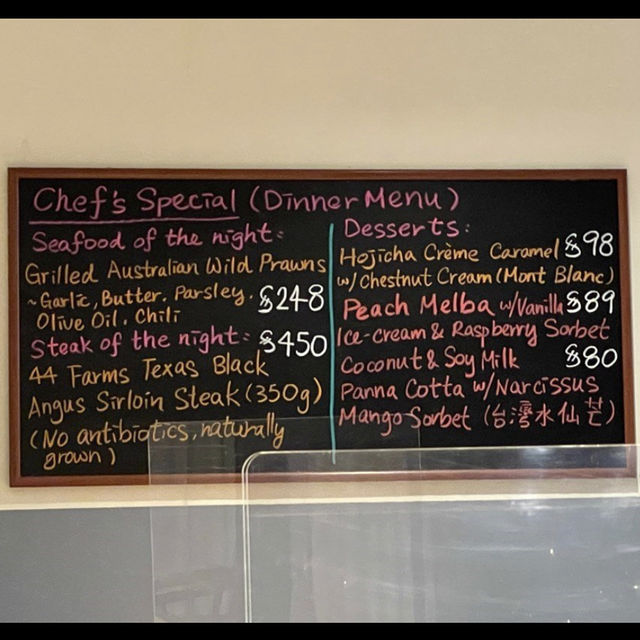 Chef's Special (Dinner Menu)
Seafood of the night:
Grilled Australian Wild Prawns
~Garlic, Butter, Parsley, $248
Olive Oil, Chili
Steak of the night: $450
44 Farms Texas Black
Angus Sirloin Steak (350g)
(No antibiotics, naturally
grown)
Desserts:
Hojicha Crème Caramel $98
w/ Chestnut Cream (Mont Blanc)
Peach Melba w/ Vanilla $89
Ice-cream & Raspberry Sorbet
Coconut & Soy Milk $80
Panna Cotta w/ Narcissus
Mango Sorbet (台灣水仙芒)